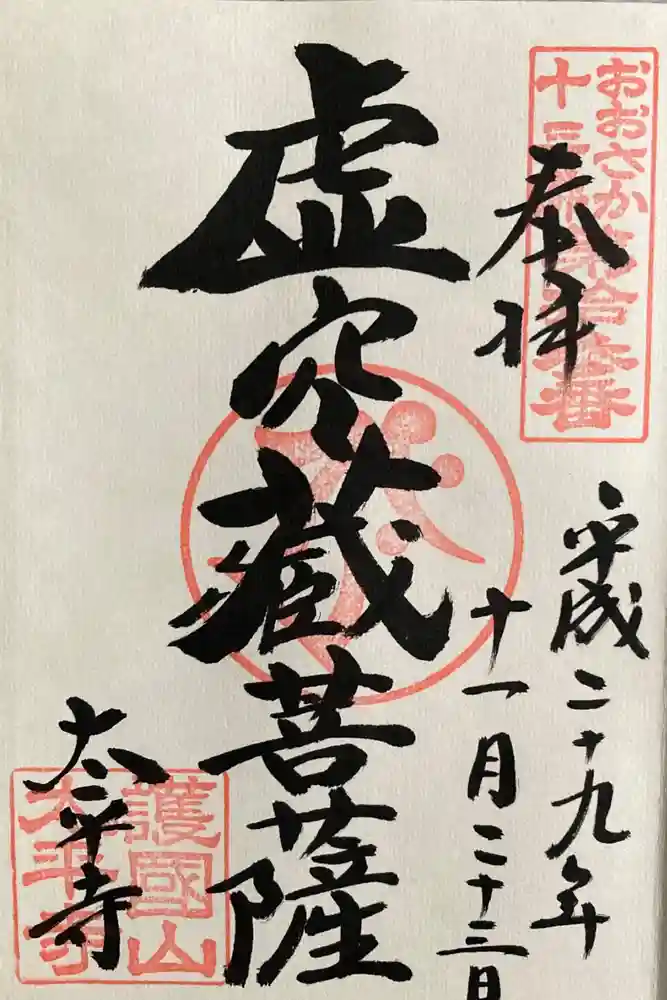 おおさか
十三佛第拾番
奉拝
平成二十九年
十一月二十三日
虚空蔵菩薩
太平寺
護國山
太平寺